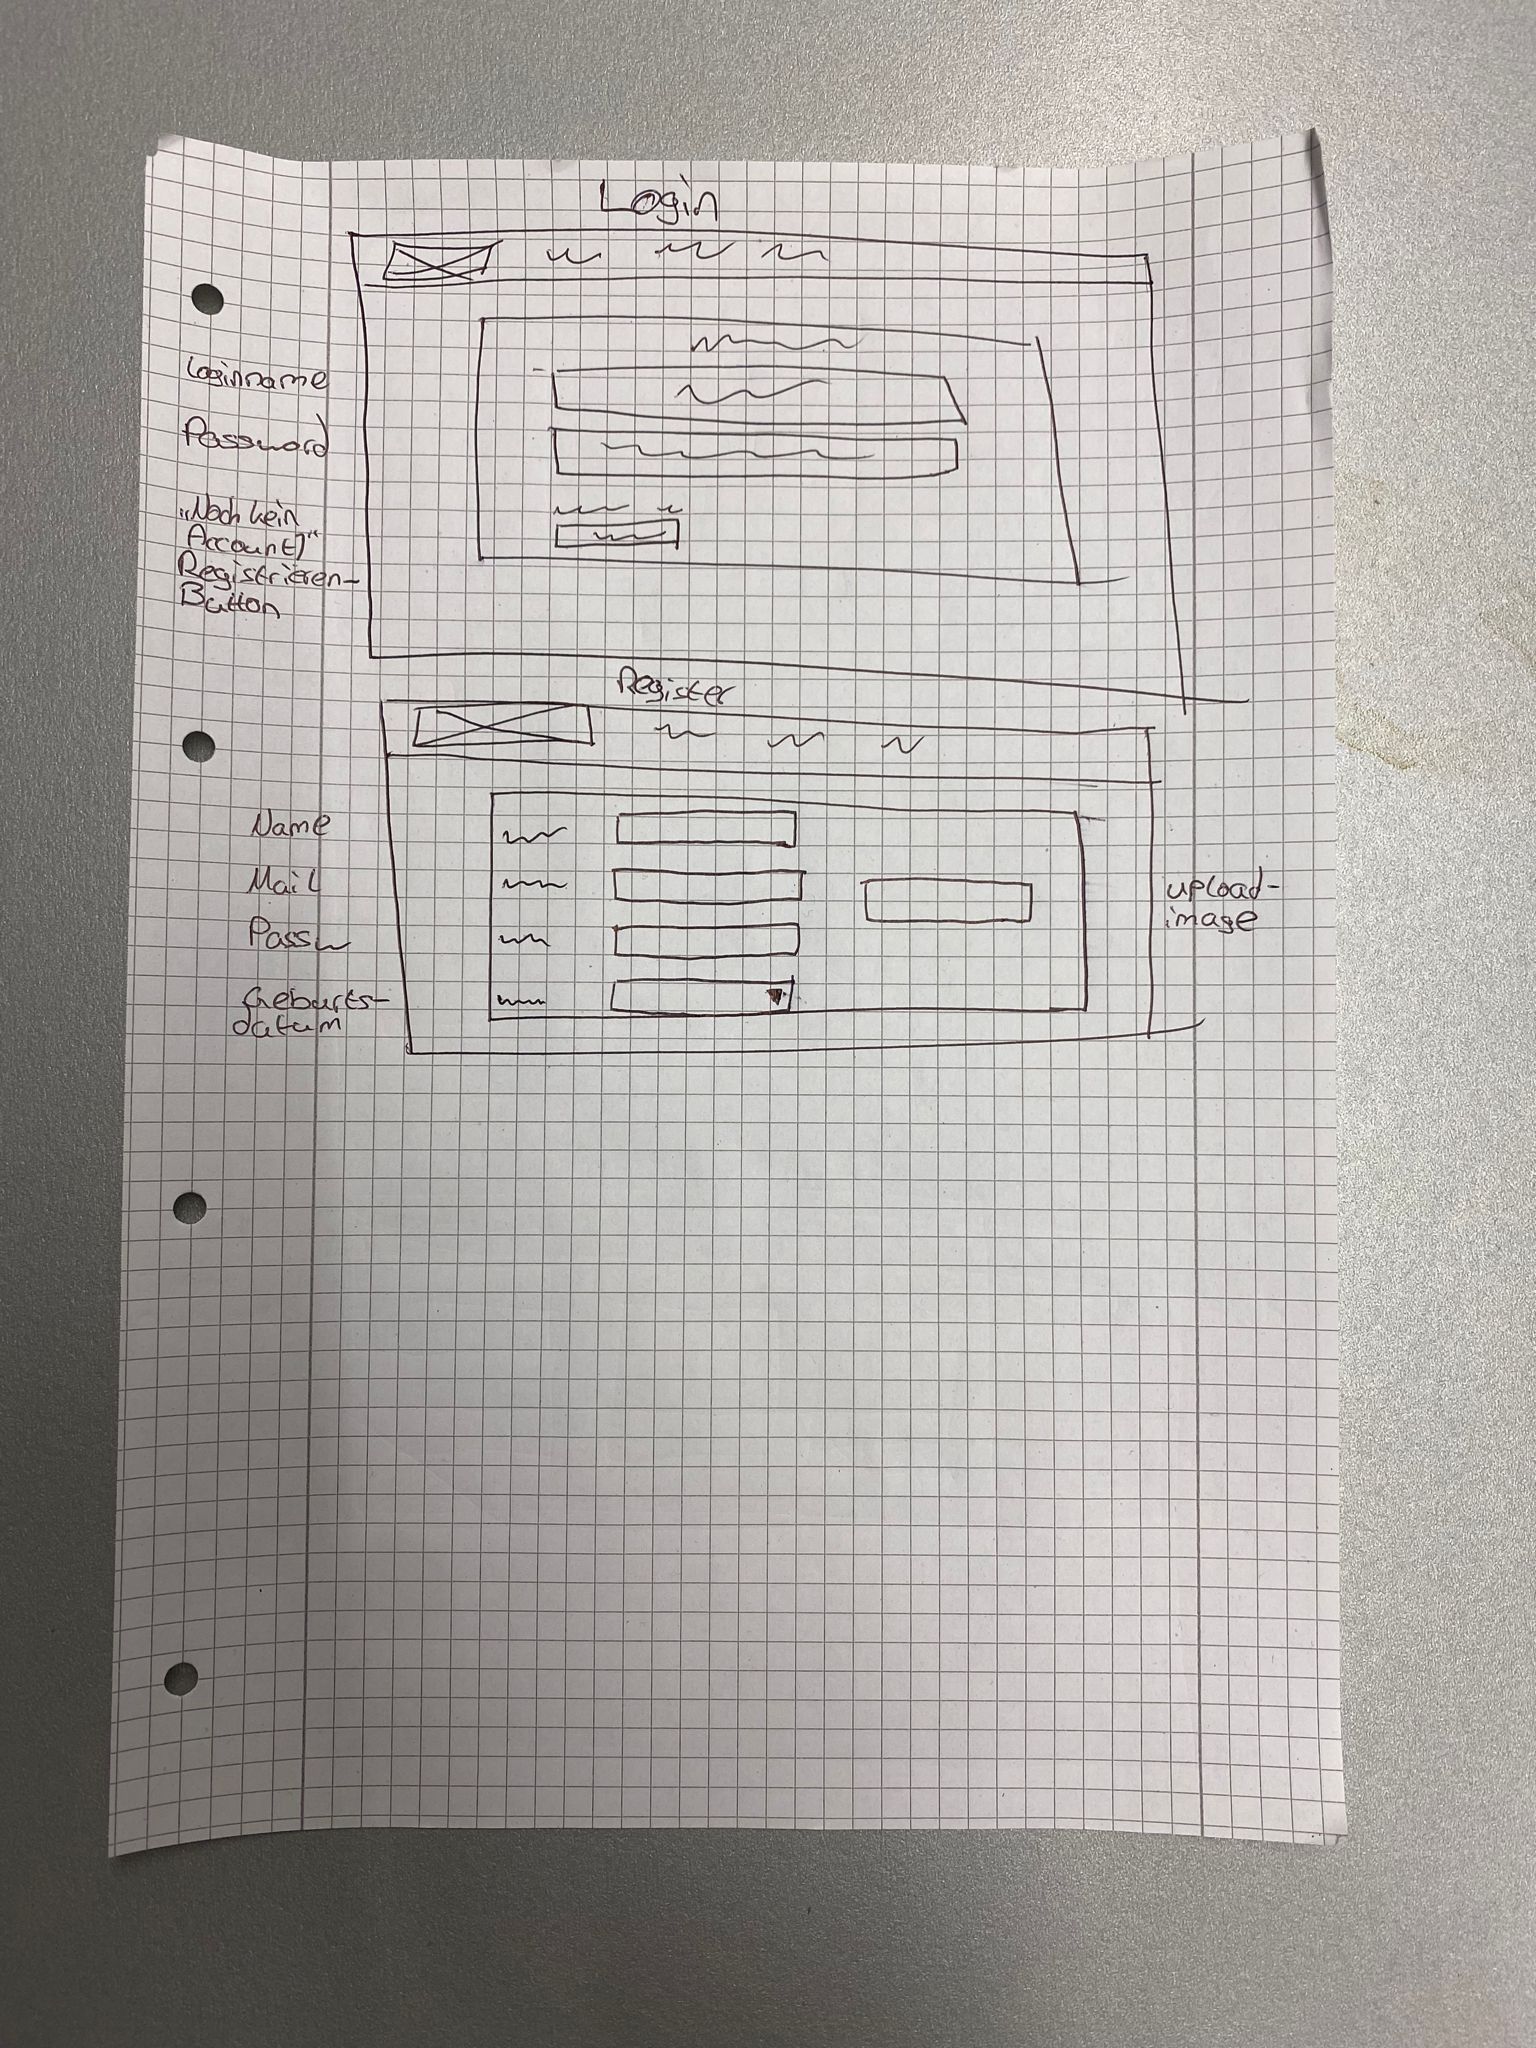 Login
Loginname
Password
„Noch kein
Account?"
Registrieren-
Button
Register
Name
Mail
Passw
Geburts-
datum
upload-
image